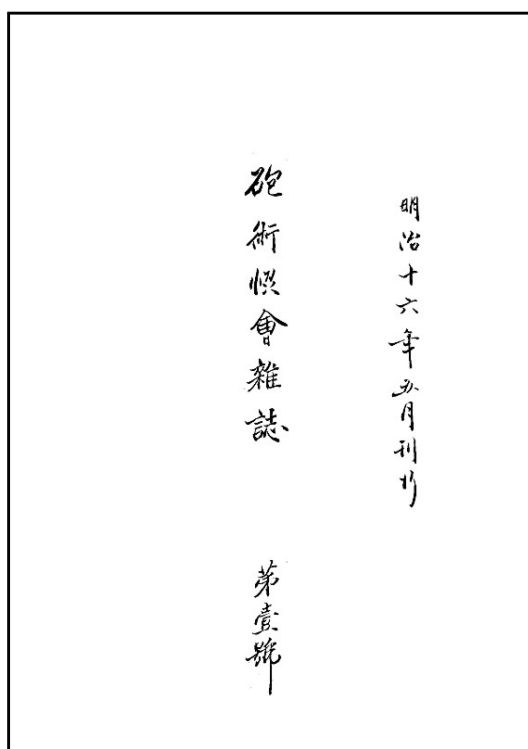 明治十六年五月刊行
砲術恊會雜誌 第壹號